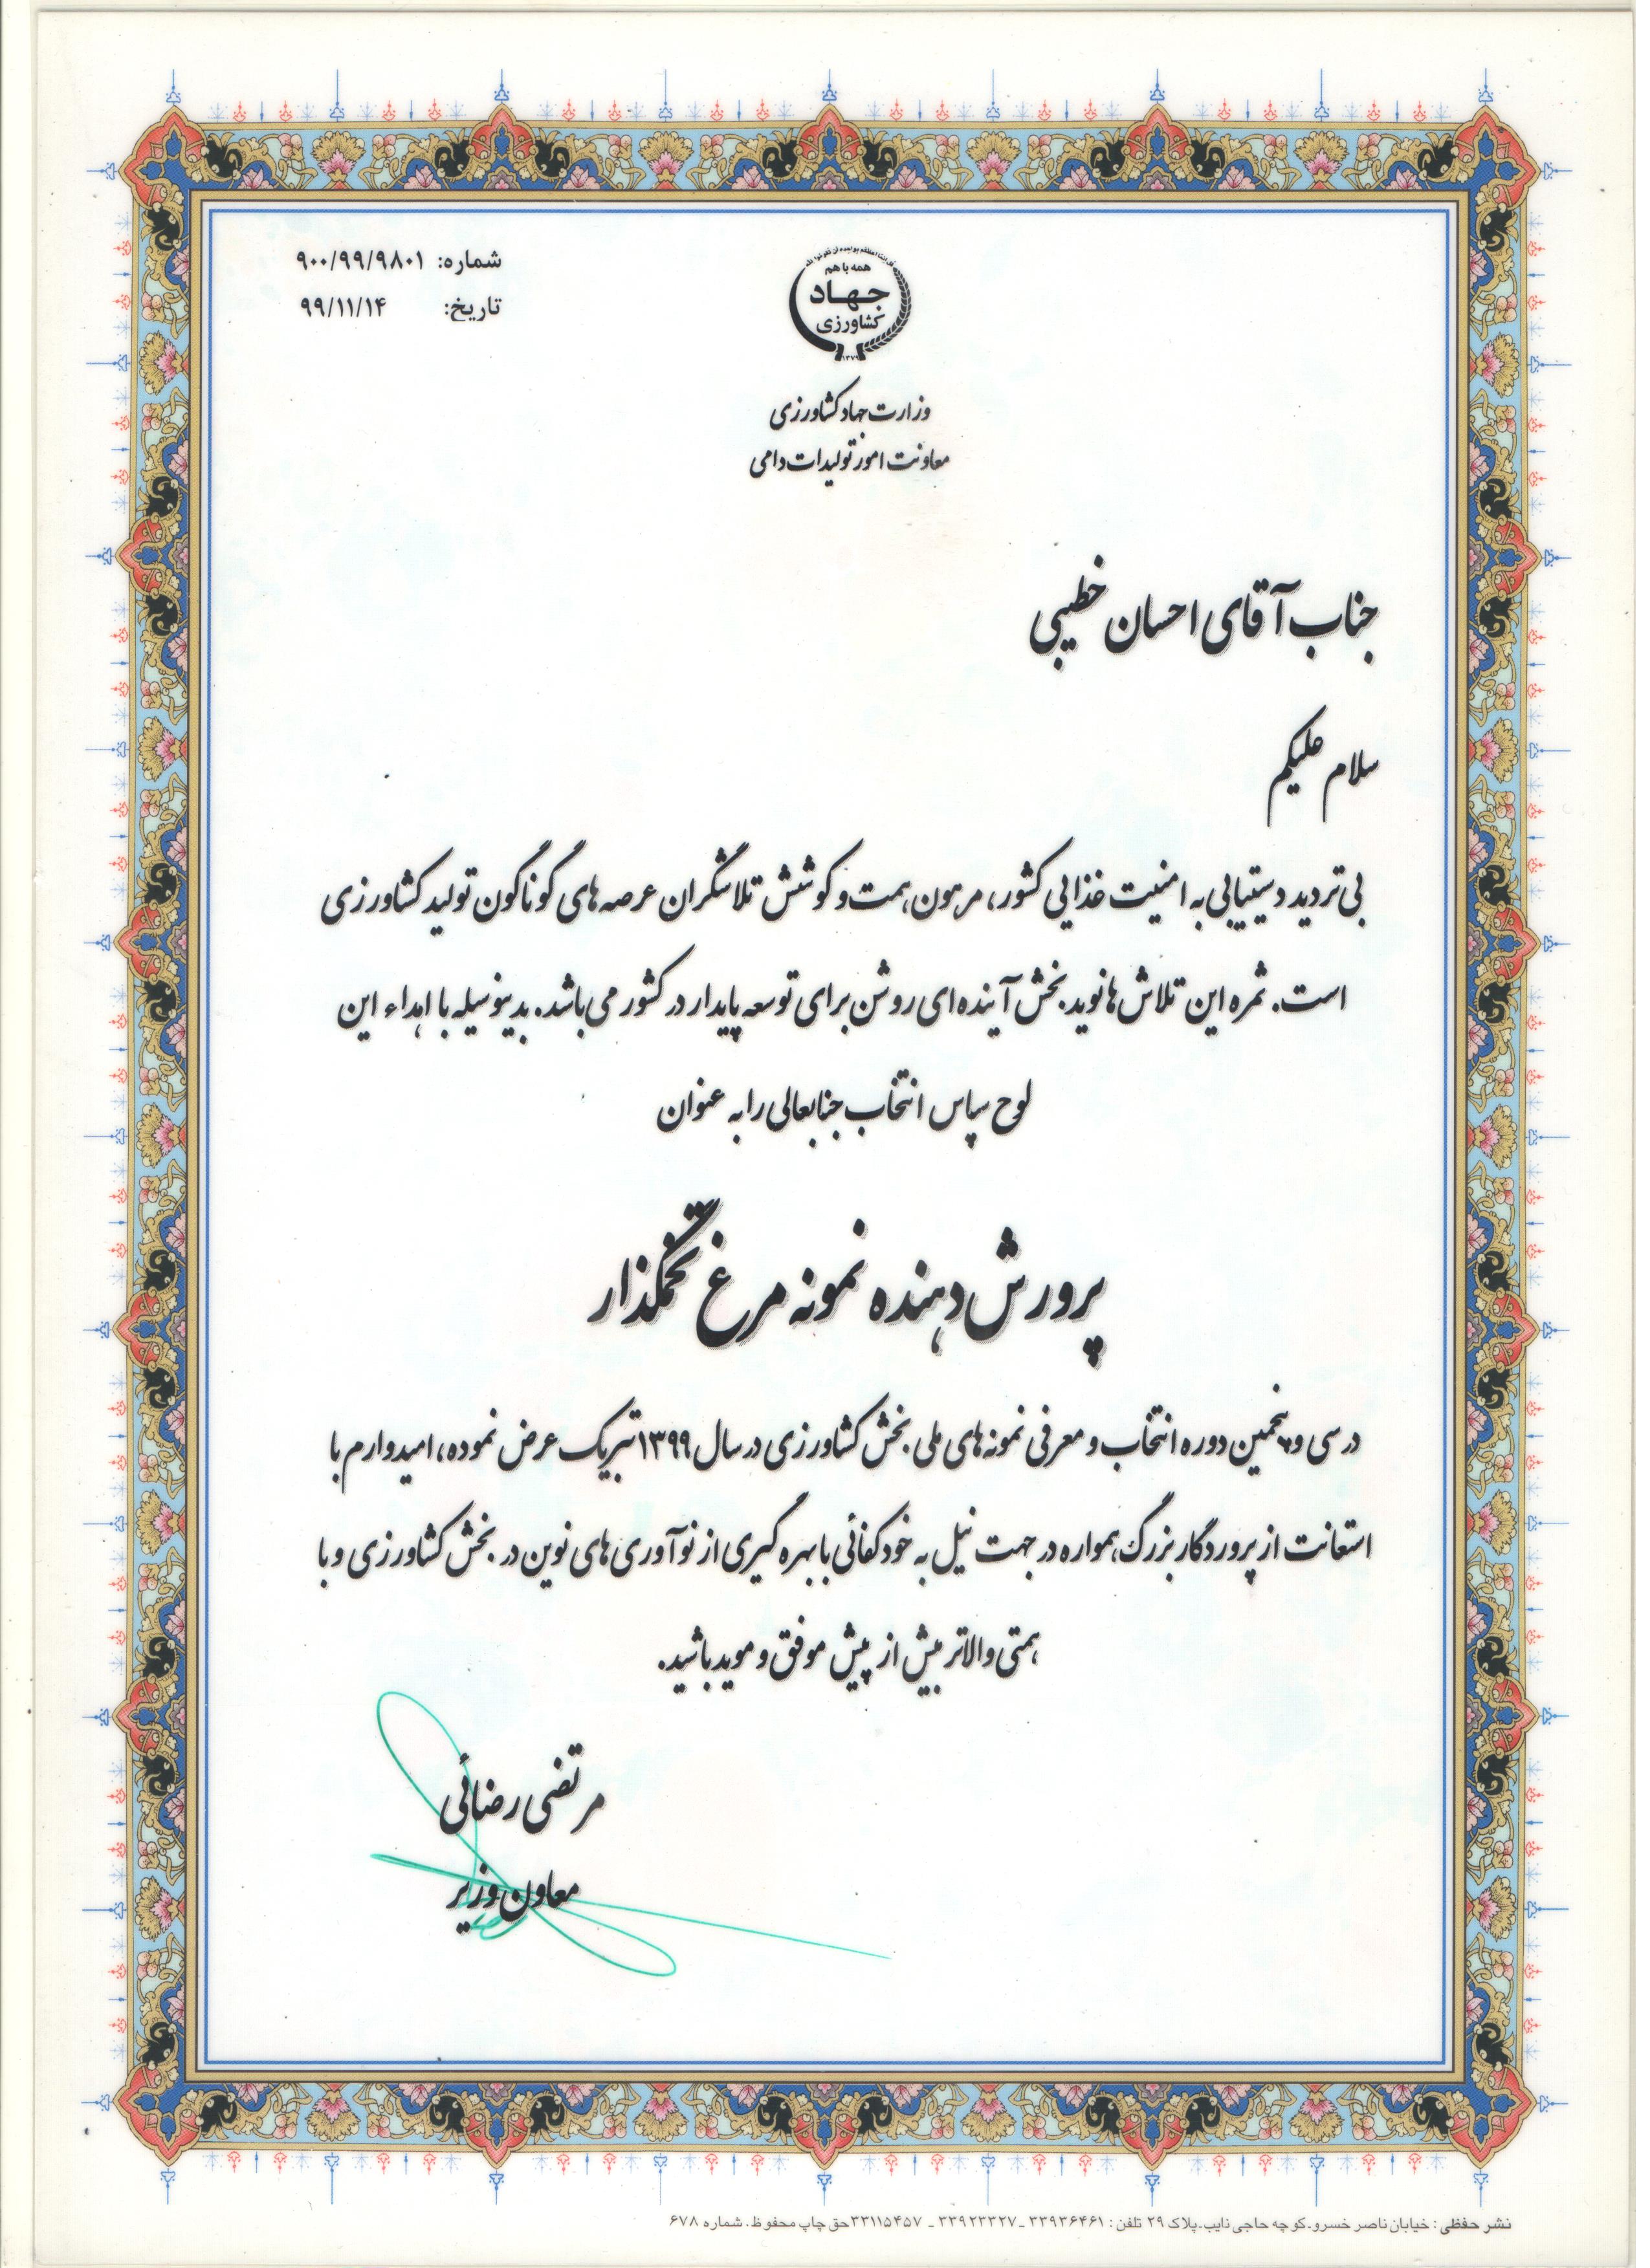 شماره: ۹۰۰/۹۹/۹۸۰۱
تاریخ: ۹۹/۱۱/۱۴
همه با هم
جهاد
کشاورزی
۱۳۷۹
وزارت جهاد کشاورزی
معاونت امور تولیدات دامی
جناب آقای احسان خطیبی
سلام علیکم
بی تردید دستیابی به امنیت غذایی کشور، مرهون همت و کوشش تلاشگران عرصه های گوناگون تولید کشاورزی
است. ثمره این تلاش ها نوید بخش آینده ای روشن برای توسعه پایدار در کشور می باشد. بدینوسیله با اهداء این
لوح سپاس انتخاب جنابعالی را به عنوان
پرورش دهنده نمونه مرغ تخمگذار
در سی و پنجمین دوره انتخاب و معرفی نمونه های ملی بخش کشاورزی در سال ۱۳۹۹ تبریک عرض نموده، امیدوارم با
استعانت از پروردگار بزرگ، همواره در جهت نیل به خودکفائی با بهره گیری از نوآوری های نوین در بخش کشاورزی و با
همتی والاتر بیش از پیش موفق و موید باشید.
مرتضی رضائی
معاون وزیر
نشر حفظی : خیابان ناصر خسرو-کوچه حاجی نایب-پلاک ۲۹ تلفن : ۳۳۹۳۶۴۶۱ - ۳۳۹۲۳۳۲۷ - ۳۳۱۱۵۴۵۷ حق چاپ محفوظ . شماره ۶۷۸